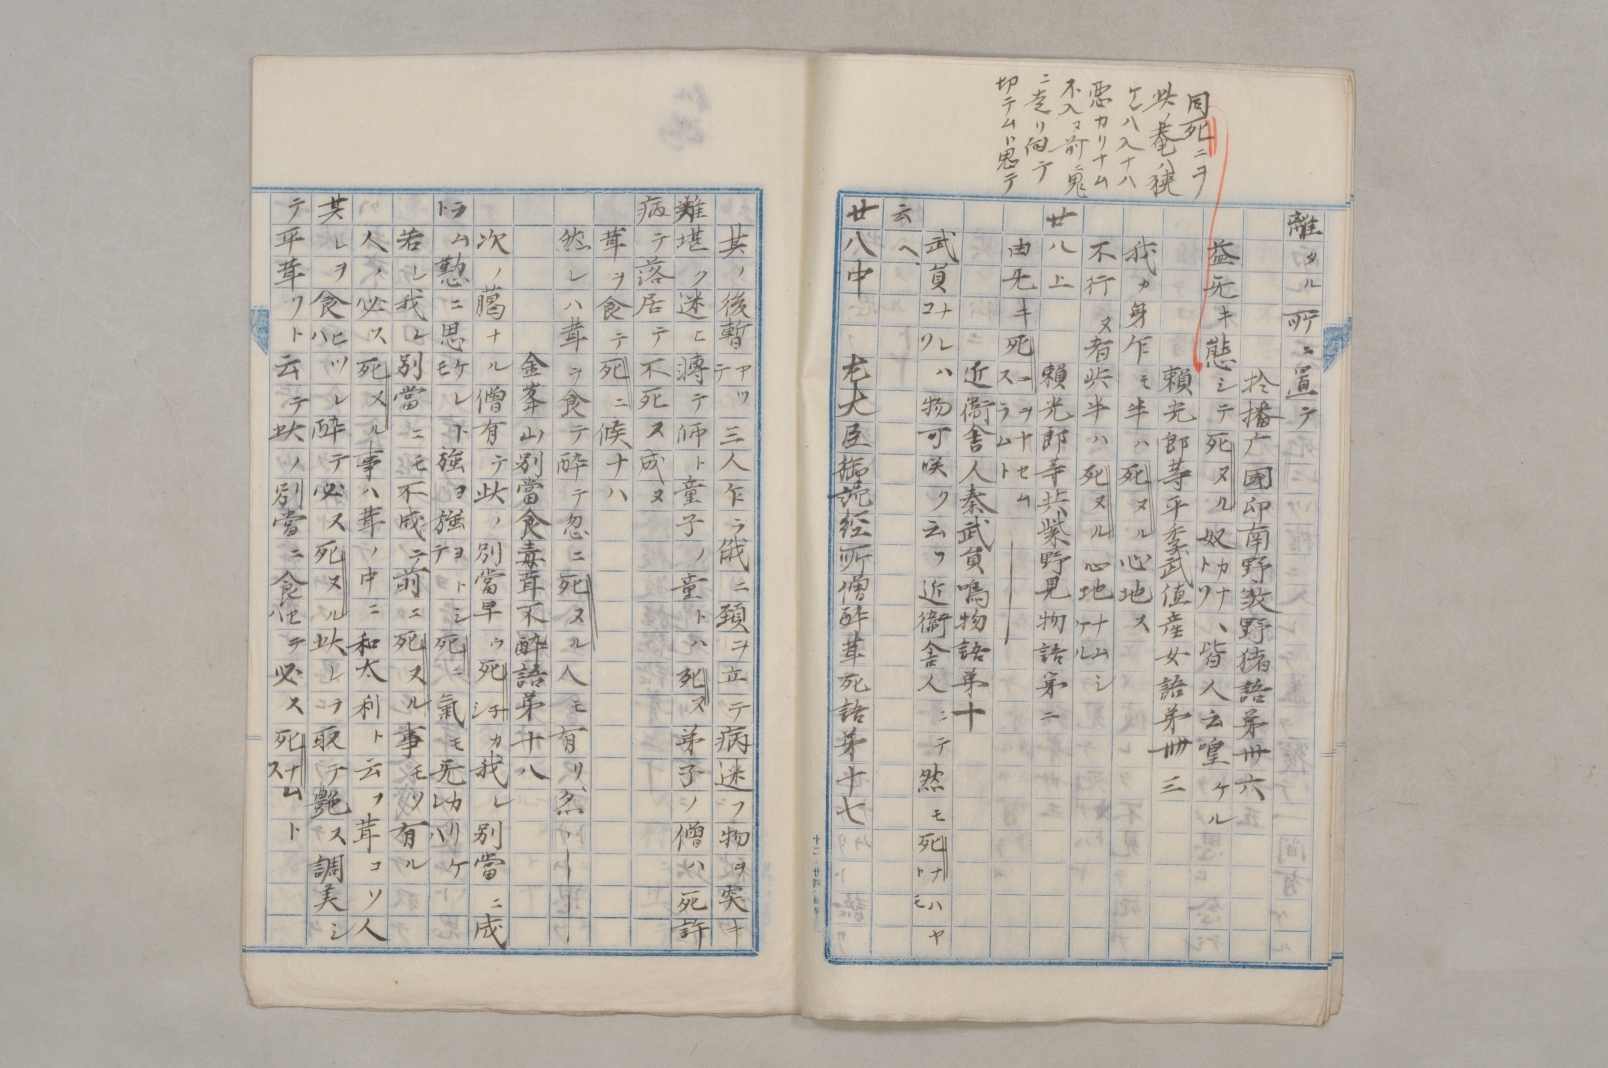 同死ニヲ
此ノ菴ノ狹
ケレハ入ナハ
悪カリナム
不入ヌ前ニ鬼
ニ走リ向テ
切テムト思テ
離タル所ニ置テ
於播广國印南野殺野猪語第卅六
益无キ態シテ死ヌル奴カナトソ、皆人云喤ケル
頼光郎等平季武値産女語第卌三
我カ身乍モ半ハ死ヌル心地ス
不行ヌ者共半ハ死ヌル心地ナムシケル
廿八上　頼光郎等共紫野見物語第二
由无キ死ニヲヤセムスラムト
近衛舎人秦武員鳴物語第十
武員コソナレハ物可咲ク云フ近衛舎人ニテ然モ死ナハヤトモ
云ヘ
廿八中　尤大臣御読経所僧酔茸死語第十七
其ノ後暫アリテ三人乍ラ俄ニ頚ヲ立テ病迷フ物ヲ突キ
難堪ク迷ヒ漙テ師ト童子ノ童トハ死ヌ弟子ノ僧ハ死許
病テ落居テ不死ス成ヌ
茸ヲ食テ死ニ候ナハ
然レハ茸ヲ食テ酔テ忽ニ死スル人モ有リ、然――
金峯山別當食毒茸不酔語第十八
次ノ﨟ナル僧有テ此ノ別當早ウ死シチカ我レ別當ニ成
ラムト懃ニ思ケレトモ強ヨ強ヨトシテ死ニ氣モ无カリケレハ
若シ我レ別當ニモ不成ニ前ニ死スル事モソ有ル
人ノ必ス死ヌル事ハ茸ノ中ニ和太利ト云フ茸コソ人
其レヲ食ヒツレハ酔テ必ス死ヌル此レヲ取テ艶ス調美シ
テ平茸ソト云テ此ノ別當ニ食セテハ必ス死ナムスト